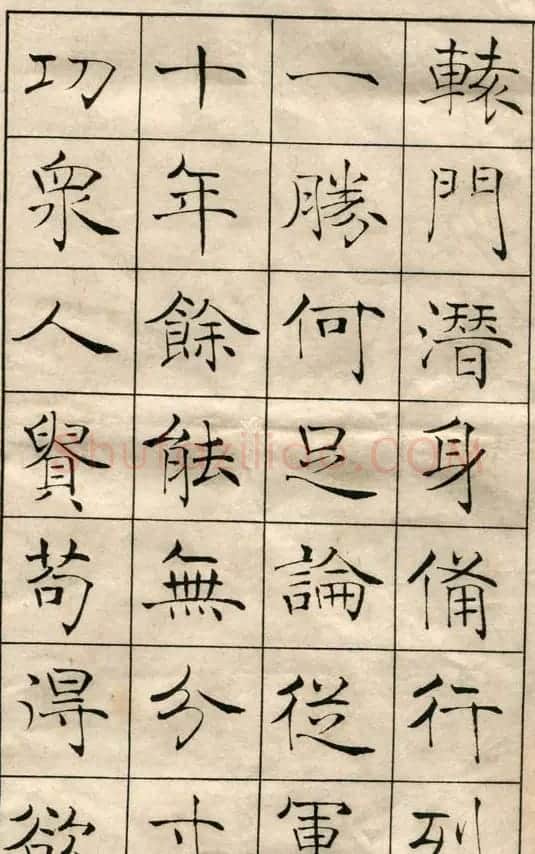 轅門潛身備行列
一勝何足論從軍
十年餘能無分寸
功眾人貴苟得欲
shufaziliao.COM